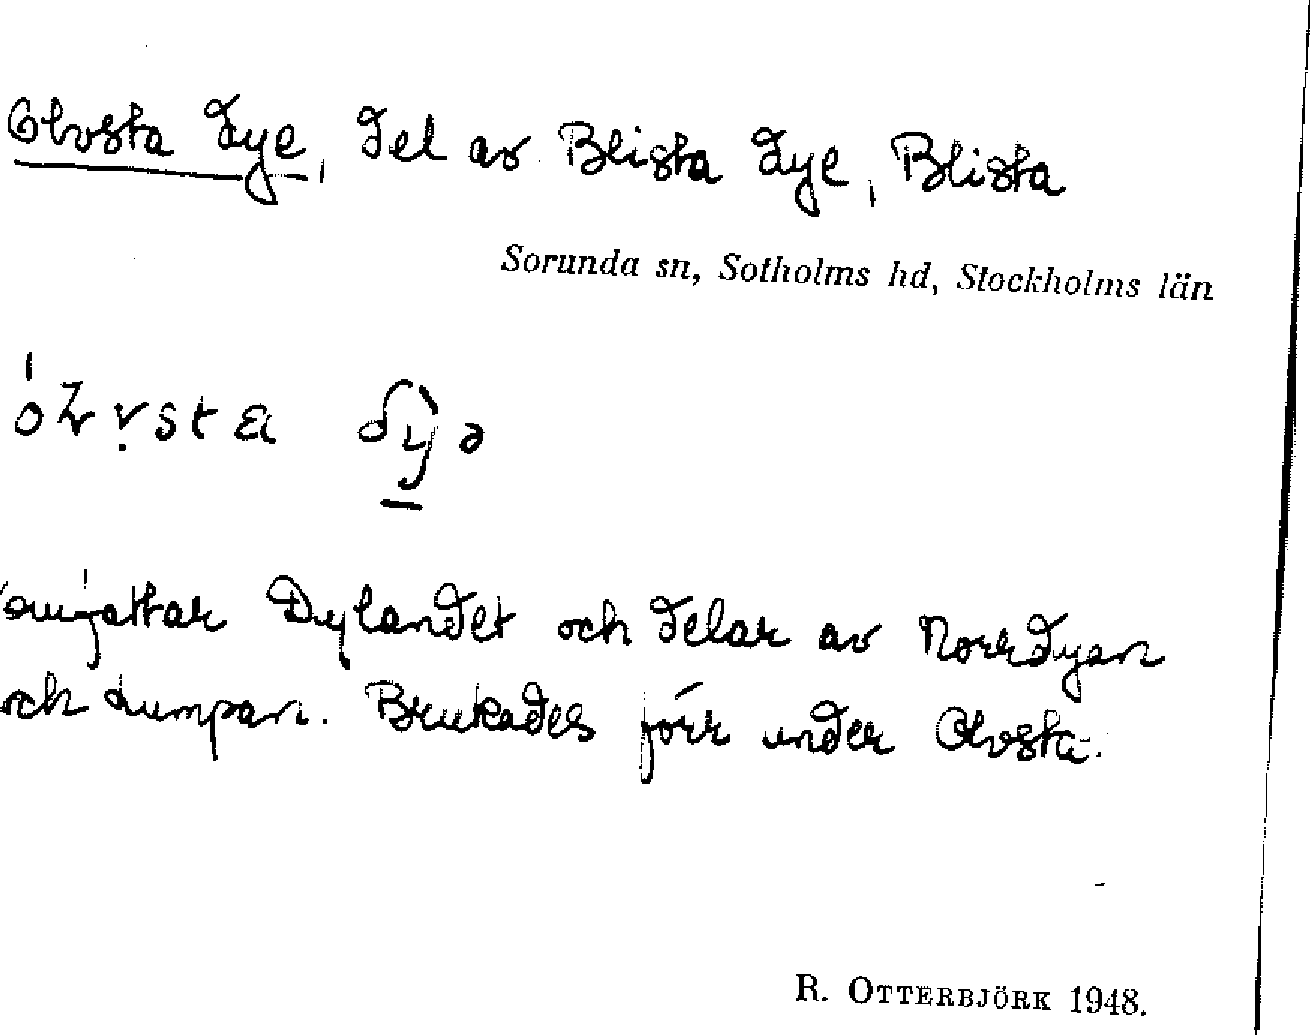 Olvsta dye, del av Blista dye, Blista
Sorunda sn, Sotholms hd, Stockholms län
omfattar Dylandet och delar av Norrdyan
och Lumpan. Brukades förr under Olvsta.
R. OTTERBJÖRK 1948.